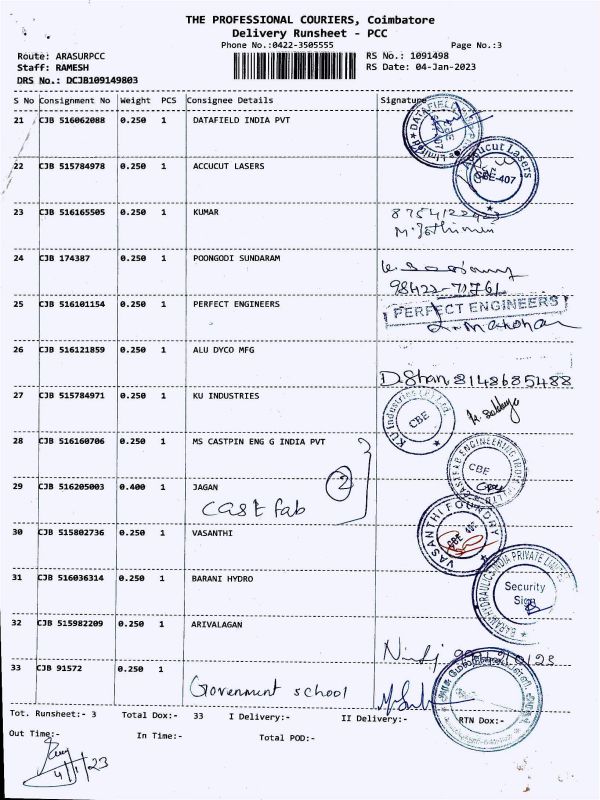 THE PROFESSIONAL COURIERS, Coimbatore
Delivery Runsheet - PCC
Phone No.:0422-3505555
Page No.:3
Route: ARASURPCC
RS No.: 1091498
Staff: RAMESH
RS Date: 04-Jan-2023
DRS No.: DCJB109149803
S No Consignment No Weight PCS Consignee Details Signature
21 CJB 516062088 0.250 1 DATAFIELD INDIA PVT
22 CJB 515784978 0.250 1 ACCUCUT LASERS
Accucut Lasers
CBE-407
23 CJB 516165505 0.250 1 KUMAR
24 CJB 174387 0.250 1 POONGODI SUNDARAM
98422-71761
25 CJB 516101154 0.250 1 PERFECT ENGINEERS
PERFECT ENGINEERS
26 CJB 516121859 0.250 1 ALU DYCO MFG
8148685488
27 CJB 515784971 0.250 1 KU INDUSTRIES
KU Industries (P) Ltd.
CBE
28 CJB 516160706 0.250 1 MS CASTPIN ENG G INDIA PVT
CBE
29 CJB 516205003 0.400 1 JAGAN
2
cast fab
30 CJB 515802736 0.250 1 VASANTHI
VASANTHI FOUNDRY
31 CJB 516036314 0.250 1 BARANI HYDRO
BARANI HYDRAULICS INDIA PRIVATE LIMITED
Security
32 CJB 515982209 0.250 1 ARIVALAGAN
33 CJB 91572 0.250 1
Government school
Tot. Runsheet:- 3 Total Dox:- 33 I Delivery:- II Delivery:- RTN Dox:-
Out Time:- In Time:- Total POD:-
4/1/23